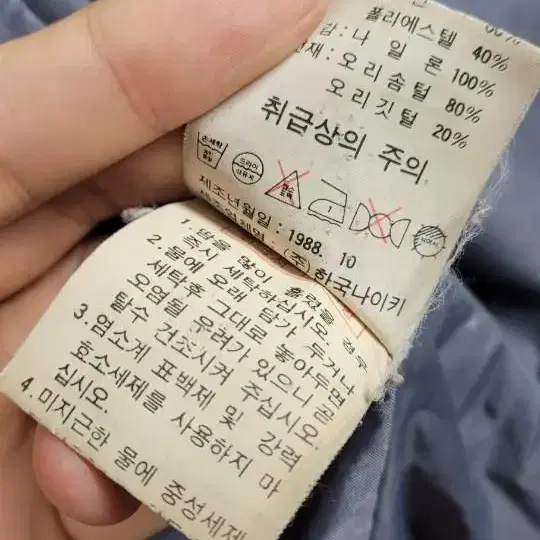 60%
폴리에스텔 40%
감: 나 일 론 100%
전재: 오 리 솜 털 80%
오 리 깃 털 20%
취급상의 주의
손세탁
드라이
염소
표백
제조년월일 : 1988. 10
제조업체명 : (주) 한국나이키
1. 땀을 많이 흘렸을 경우
즉시 세탁하십시오.
2. 물에 오래 담가 두거나
세탁후 그대로 놓아두면
오염될 우려가 있으니 곧
탈수 건조시켜 주십시오.
3. 염소계 표백제 및 강력
효소세제를 사용하지 마
십시오.
4. 미지근한 물에 중성세제